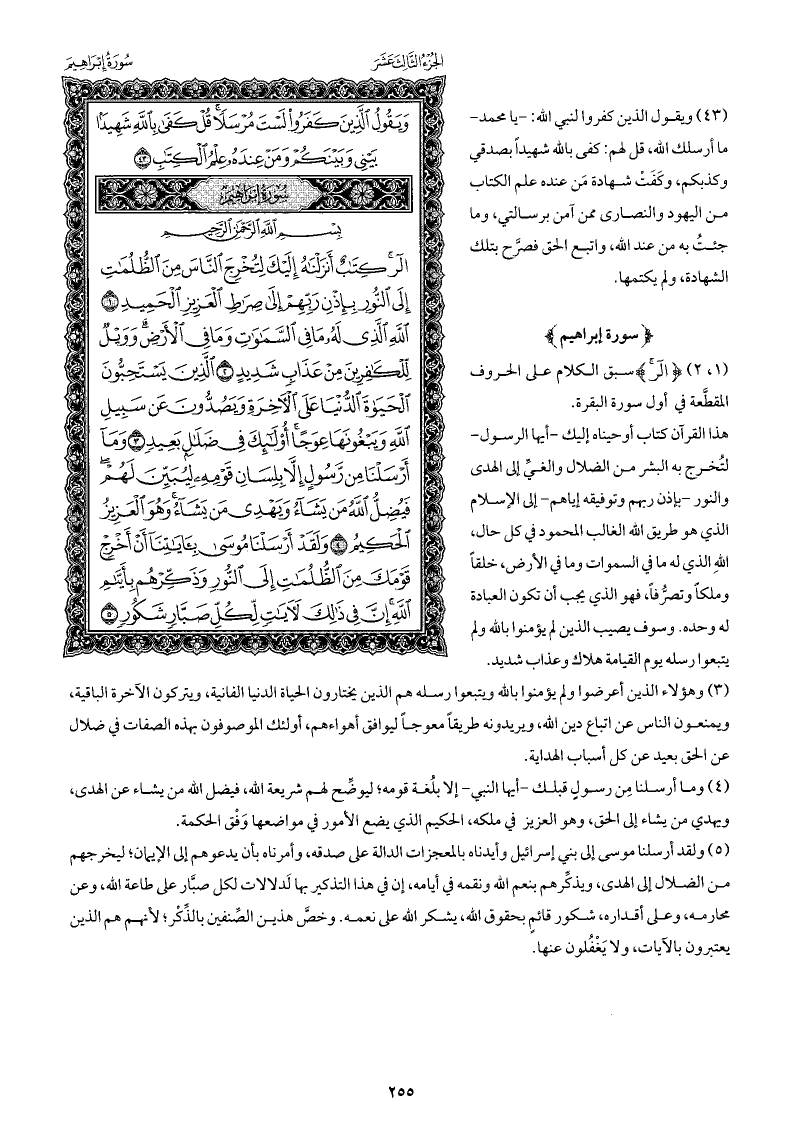 الجزء الثالث عشر
سورة إبراهيم
وَيَقُولُ ٱلَّذِينَ كَفَرُواْ لَسْتَ مُرْسَلٗاۚ قُلْ كَفَىٰ بِٱللَّهِ شَهِيدَۢا
بَيْنِي وَبَيْنَكُمْ وَمَنْ عِندَهُۥ عِلْمُ ٱلْكِتَٰبِ ٤٣
سُورَةُ إِبْرَاهِيمَ
بِسْمِ ٱللَّهِ ٱلرَّحْمَٰنِ ٱلرَّحِيمِ
الٓرۚ كِتَٰبٌ أَنزَلْنَٰهُ إِلَيْكَ لِتُخْرِجَ ٱلنَّاسَ مِنَ ٱلظُّلُمَٰتِ
إِلَى ٱلنُّورِ بِإِذْنِ رَبِّهِمْ إِلَىٰ صِرَٰطِ ٱلْعَزِيزِ ٱلْحَمِيدِ ١
ٱللَّهِ ٱلَّذِي لَهُۥ مَا فِي ٱلسَّمَٰوَٰتِ وَمَا فِي ٱلْأَرْضِۗ وَوَيْلٌ
لِّلْكَٰفِرِينَ مِنْ عَذَابٖ شَدِيدٍ ٢ ٱلَّذِينَ يَسْتَحِبُّونَ
ٱلْحَيَوٰةَ ٱلدُّنْيَا عَلَى ٱلْأٓخِرَةِ وَيَصُدُّونَ عَن سَبِيلِ
ٱللَّهِ وَيَبْغُونَهَا عِوَجًاۚ أُوْلَٰٓئِكَ فِي ضَلَٰلِۭ بَعِيدٖ ٣ وَمَآ
أَرْسَلْنَا مِن رَّسُولٍ إِلَّا بِلِسَانِ قَوْمِهِۦ لِيُبَيِّنَ لَهُمْۖ
فَيُضِلُّ ٱللَّهُ مَن يَشَآءُ وَيَهْدِي مَن يَشَآءُۚ وَهُوَ ٱلْعَزِيزُ
ٱلْحَكِيمُ ٤ وَلَقَدْ أَرْسَلْنَا مُوسَىٰ بِـَٔايَٰتِنَآ أَنْ أَخْرِجْ
قَوْمَكَ مِنَ ٱلظُّلُمَٰتِ إِلَى ٱلنُّورِ وَذَكِّرْهُم بِأَيَّىٰمِ
ٱللَّهِۚ إِنَّ فِي ذَٰلِكَ لَأٓيَٰتٖ لِّكُلِّ صَبَّارٖ شَكُورٖ ٥
(٤٣) ويقول الذين كفروا لنبي الله: -يا محمد-
ما أرسلك الله، قل لهم: كفى بالله شهيداً بصدقي
وكذبكم، وكَفَتْ شهادة مَن عنده علم الكتاب
من اليهود والنصارى ممن آمن برسالتي، وما
جئتُ به من عند الله، واتبع الحق فصرَّح بتلك
الشهادة، ولم يكتمها.
﴿سورة إبراهيم﴾
(١، ٢) ﴿الٓرۚ﴾ سبق الكلام على الحروف
المقطَّعة في أول سورة البقرة.
هذا القرآن كتاب أوحيناه إليك -أيها الرسول-
لتُخرج به البشر من الضلال والغيِّ إلى الهدى
والنور -بإذن ربهم وتوفيقه إياهم- إلى الإسلام
الذي هو طريق الله الغالب المحمود في كل حال،
اللهِ الذي له ما في السموات وما في الأرض، خلقاً
وملكاً وتصرُّفاً، فهو الذي يجب أن تكون العبادة
له وحده. وسوف يصيب الذين لم يؤمنوا بالله ولم
يتبعوا رسله يوم القيامة هلاك وعذاب شديد.
(٣) وهؤلاء الذين أعرضوا ولم يؤمنوا بالله ويتبعوا رسله هم الذين يختارون الحياة الدنيا الفانية، ويتركون الآخرة الباقية،
ويمنعون الناس عن اتباع دين الله، ويريدونه طريقاً معوجاً ليوافق أهواءهم، أولئك الموصوفون بهذه الصفات في ضلال
عن الحق بعيد عن كل أسباب الهداية.
(٤) وما أرسلنا مِن رسولٍ قبلك -أيها النبي- إلا بلُغة قومه؛ ليوضِّح لهم شريعة الله، فيضل الله من يشاء عن الهدى،
ويهدي من يشاء إلى الحق، وهو العزيز في ملكه، الحكيم الذي يضع الأمور في مواضعها وَفْق الحكمة.
(٥) ولقد أرسلنا موسى إلى بني إسرائيل وأيدناه بالمعجزات الدالة على صدقه، وأمرناه بأن يدعوهم إلى الإيمان؛ ليخرجهم
من الضلال إلى الهدى، ويذكِّرهم بنعم الله ونقمه في أيامه، إن في هذا التذكير بها لَدلالات لكل صبَّار على طاعة الله، وعن
محارمه، وعلى أقداره، شكور قائمٍ بحقوق الله، يشكر الله على نعمه. وخصَّ هذين الصِّنفين بالذِّكْر؛ لأنهم هم الذين
يعتبرون بالآيات، ولا يَغْفُلون عنها.
٢٥٥